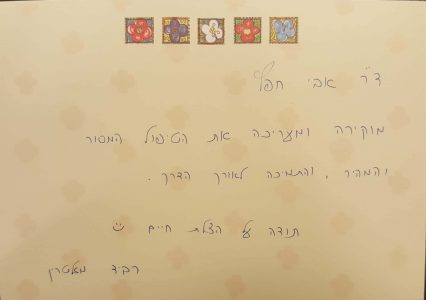 ד"ר אבי חפץ
מוקירה ומעריכה את הטיפול המסור
והמהיר, והתמיכה לאורך הדרך.
תודה על הצלת חיים ☺